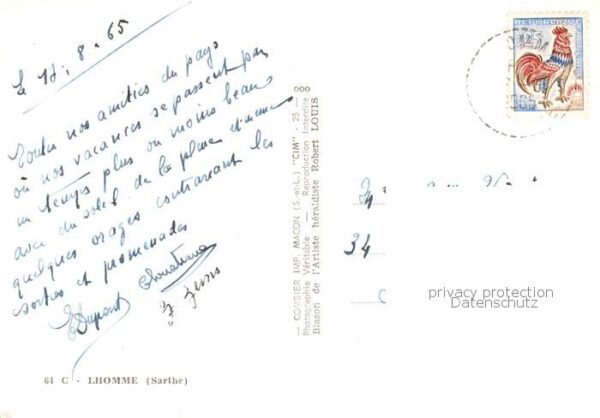 Le 17.8.65
Toutes nos amitiés du pays
où nos vacances se passent par
un temps plus ou moins beau
avec du soleil de la pluie et même
quelques orages contrariant les
sorties et promenades
E Dupont Christiane
64 C - LHOMME (Sarthe)
— COMBIER IMP. MACON (S.-et-L.) "CIM" - 25 —
Photographie Véritable — Reproduction Interdite
Blason de l'Artiste héraldiste Robert LOUIS
34
privacy protection
Datenschutz